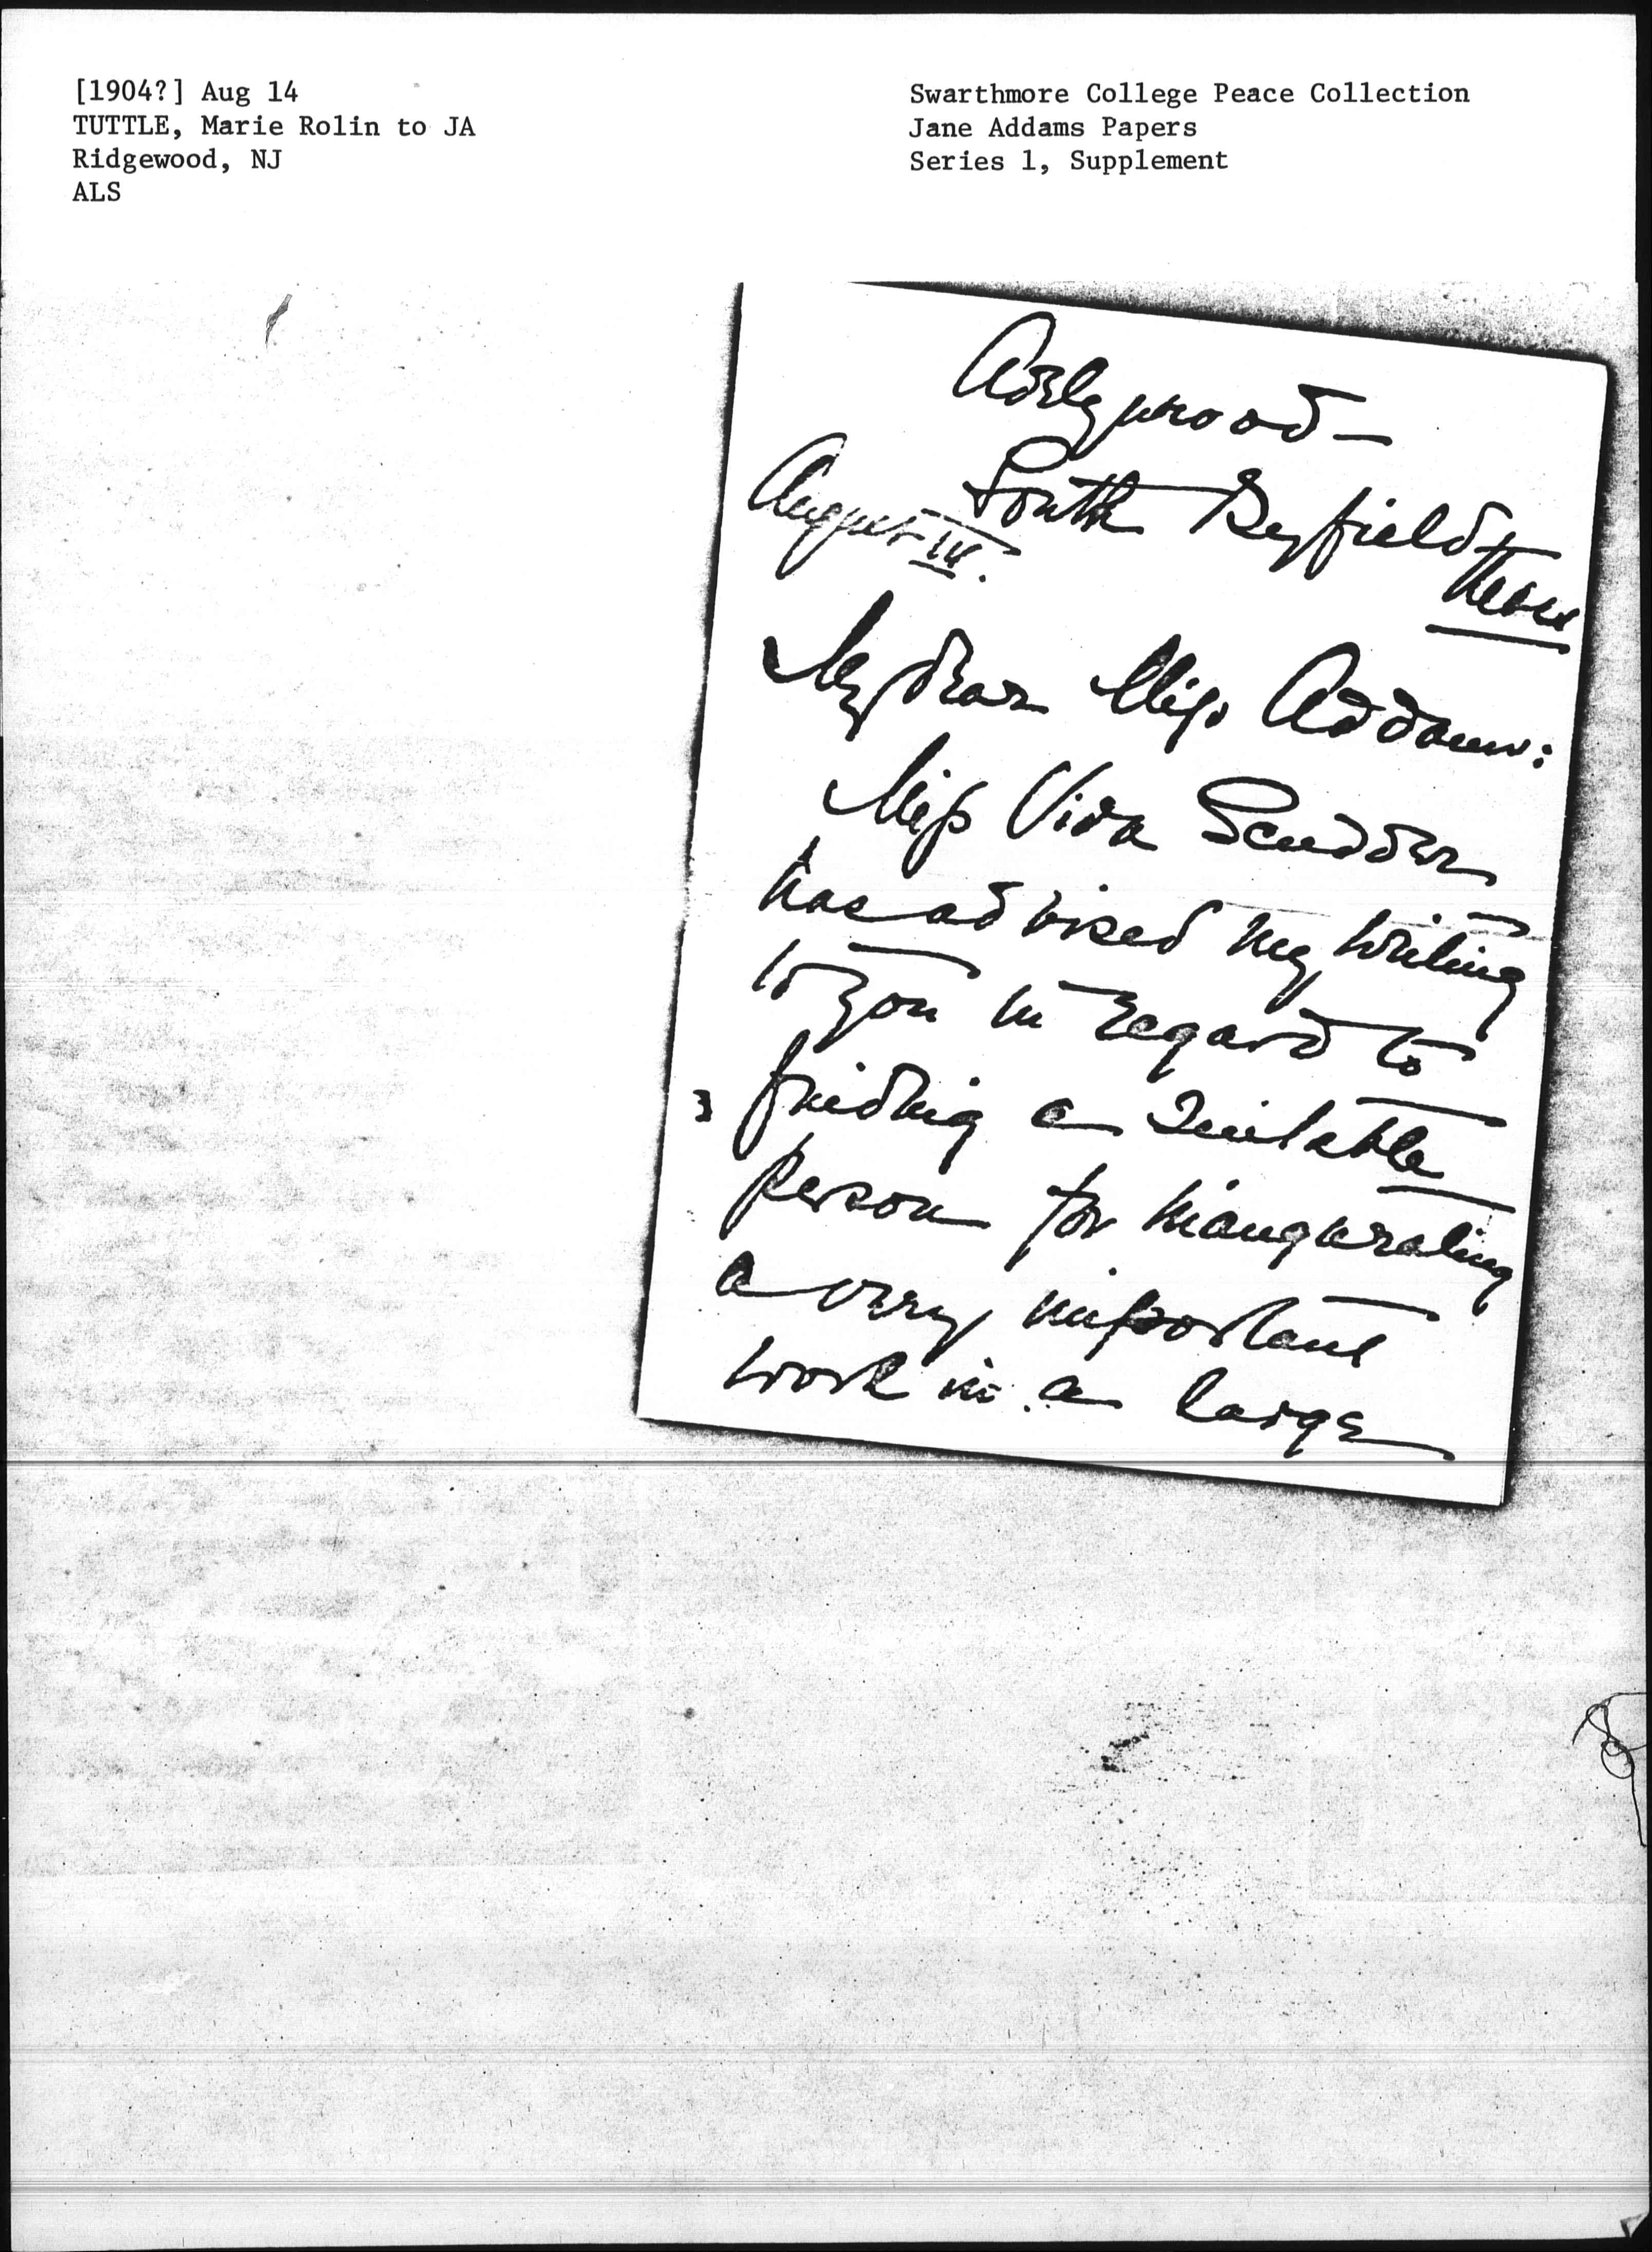 [1904?] Aug 14
TUTTLE, Marie Rolin to JA
Ridgewood, NJ
ALS
Swarthmore College Peace Collection
Jane Addams Papers
Series 1, Supplement
South Byfield
August
My dear Miss Addams:
Miss Vida Scudder
has advised my writing
to you in regard to
finding a suitable
person for inaugurating
a very important
work in a large